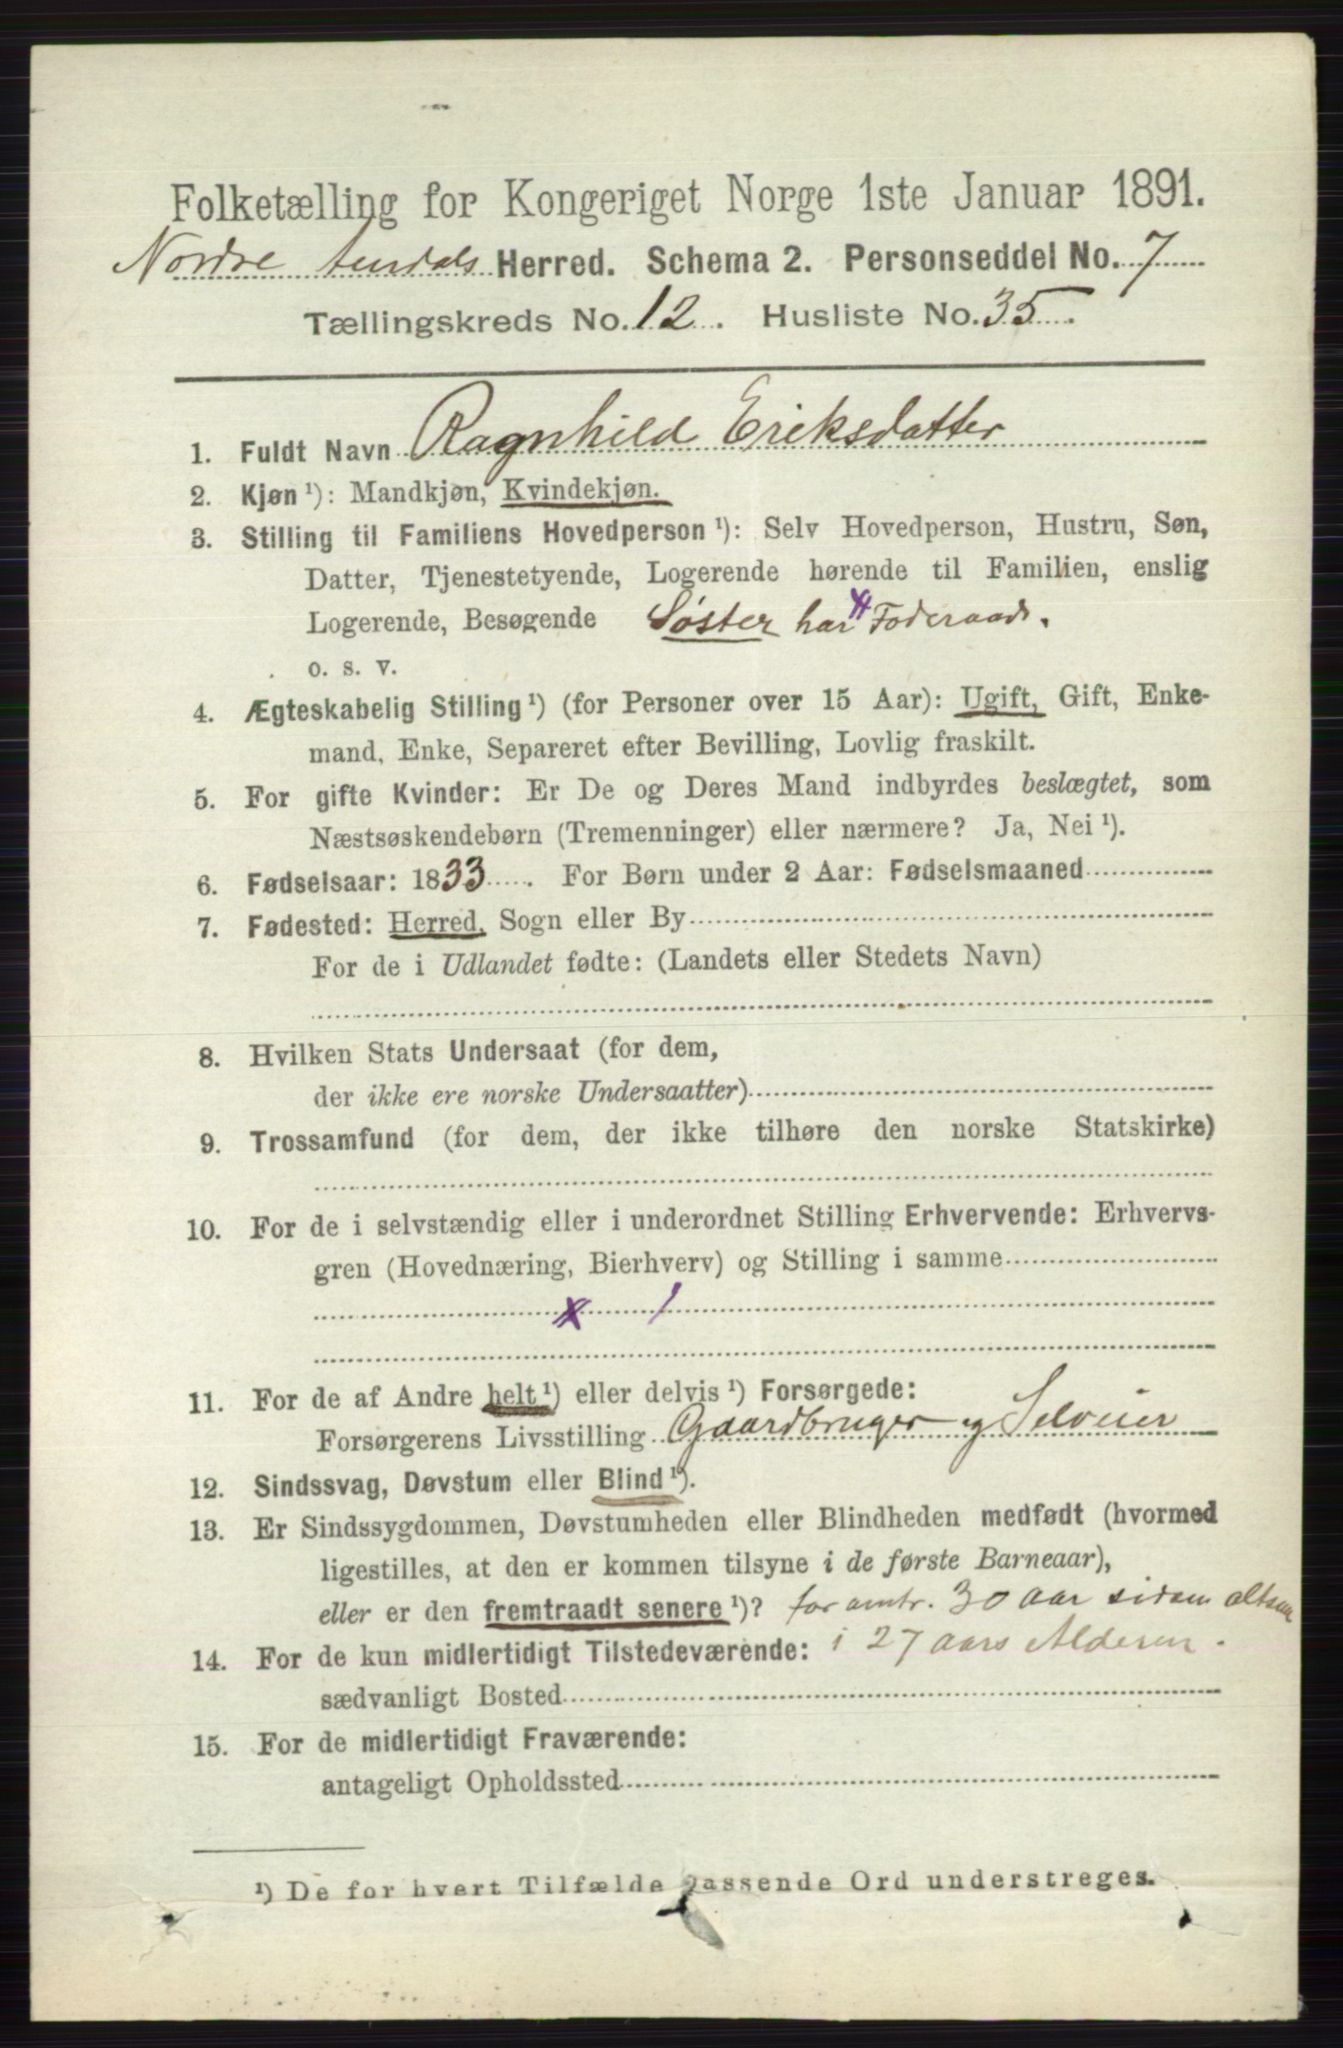 Folketælling for Kongeriget Norge 1ste Januar 1891.
Nordre Aurdals Herred. Schema 2. Personseddel No. 7
Tællingskreds No. 12. Husliste No. 35.
1. Fuldt Navn Ragnhild Eriksdatter
2. Kjøn ¹): Mandkjøn, Kvindekjøn.
3. Stilling til Familiens Hovedperson ¹): Selv Hovedperson, Hustru, Søn,
Datter, Tjenestetyende, Logerende hørende til Familien, enslig
Logerende, Besøgende Søster har Føderaad.
o. s. v.
4. Ægteskabelig Stilling ¹) (for Personer over 15 Aar): Ugift, Gift, Enke-
mand, Enke, Separeret efter Bevilling, Lovlig fraskilt.
5. For gifte Kvinder: Er De og Deres Mand indbyrdes beslægtet, som
Næstsøskendebørn (Tremenninger) eller nærmere? Ja, Nei ¹).
6. Fødselsaar: 1833. For Børn under 2 Aar: Fødselsmaaned
7. Fødested: Herred, Sogn eller By
For de i Udlandet fødte: (Landets eller Stedets Navn)
8. Hvilken Stats Undersaat (for dem,
der ikke ere norske Undersaatter)
9. Trossamfund (for dem, der ikke tilhøre den norske Statskirke)
10. For de i selvstændig eller i underordnet Stilling Erhvervende: Erhvervs-
gren (Hovednæring, Bierhverv) og Stilling i samme
x 1
11. For de af Andre helt ¹) eller delvis ¹) Forsørgede:
Forsørgerens Livsstilling Gaardbruger og Selveier
12. Sindssvag, Døvstum eller Blind ¹).
13. Er Sindssygdommen, Døvstumheden eller Blindheden medfødt (hvormed
ligestilles, at den er kommen tilsyne i de første Barneaar),
eller er den fremtraadt senere ¹)? for omtr. 30 Aar siden altsaa
i 27 aars Alderen.
14. For de kun midlertidigt Tilstedeværende:
sædvanligt Bosted
15. For de midlertidigt Fraværende:
antageligt Opholdssted
¹) De for hvert Tilfælde passende Ord understreges.